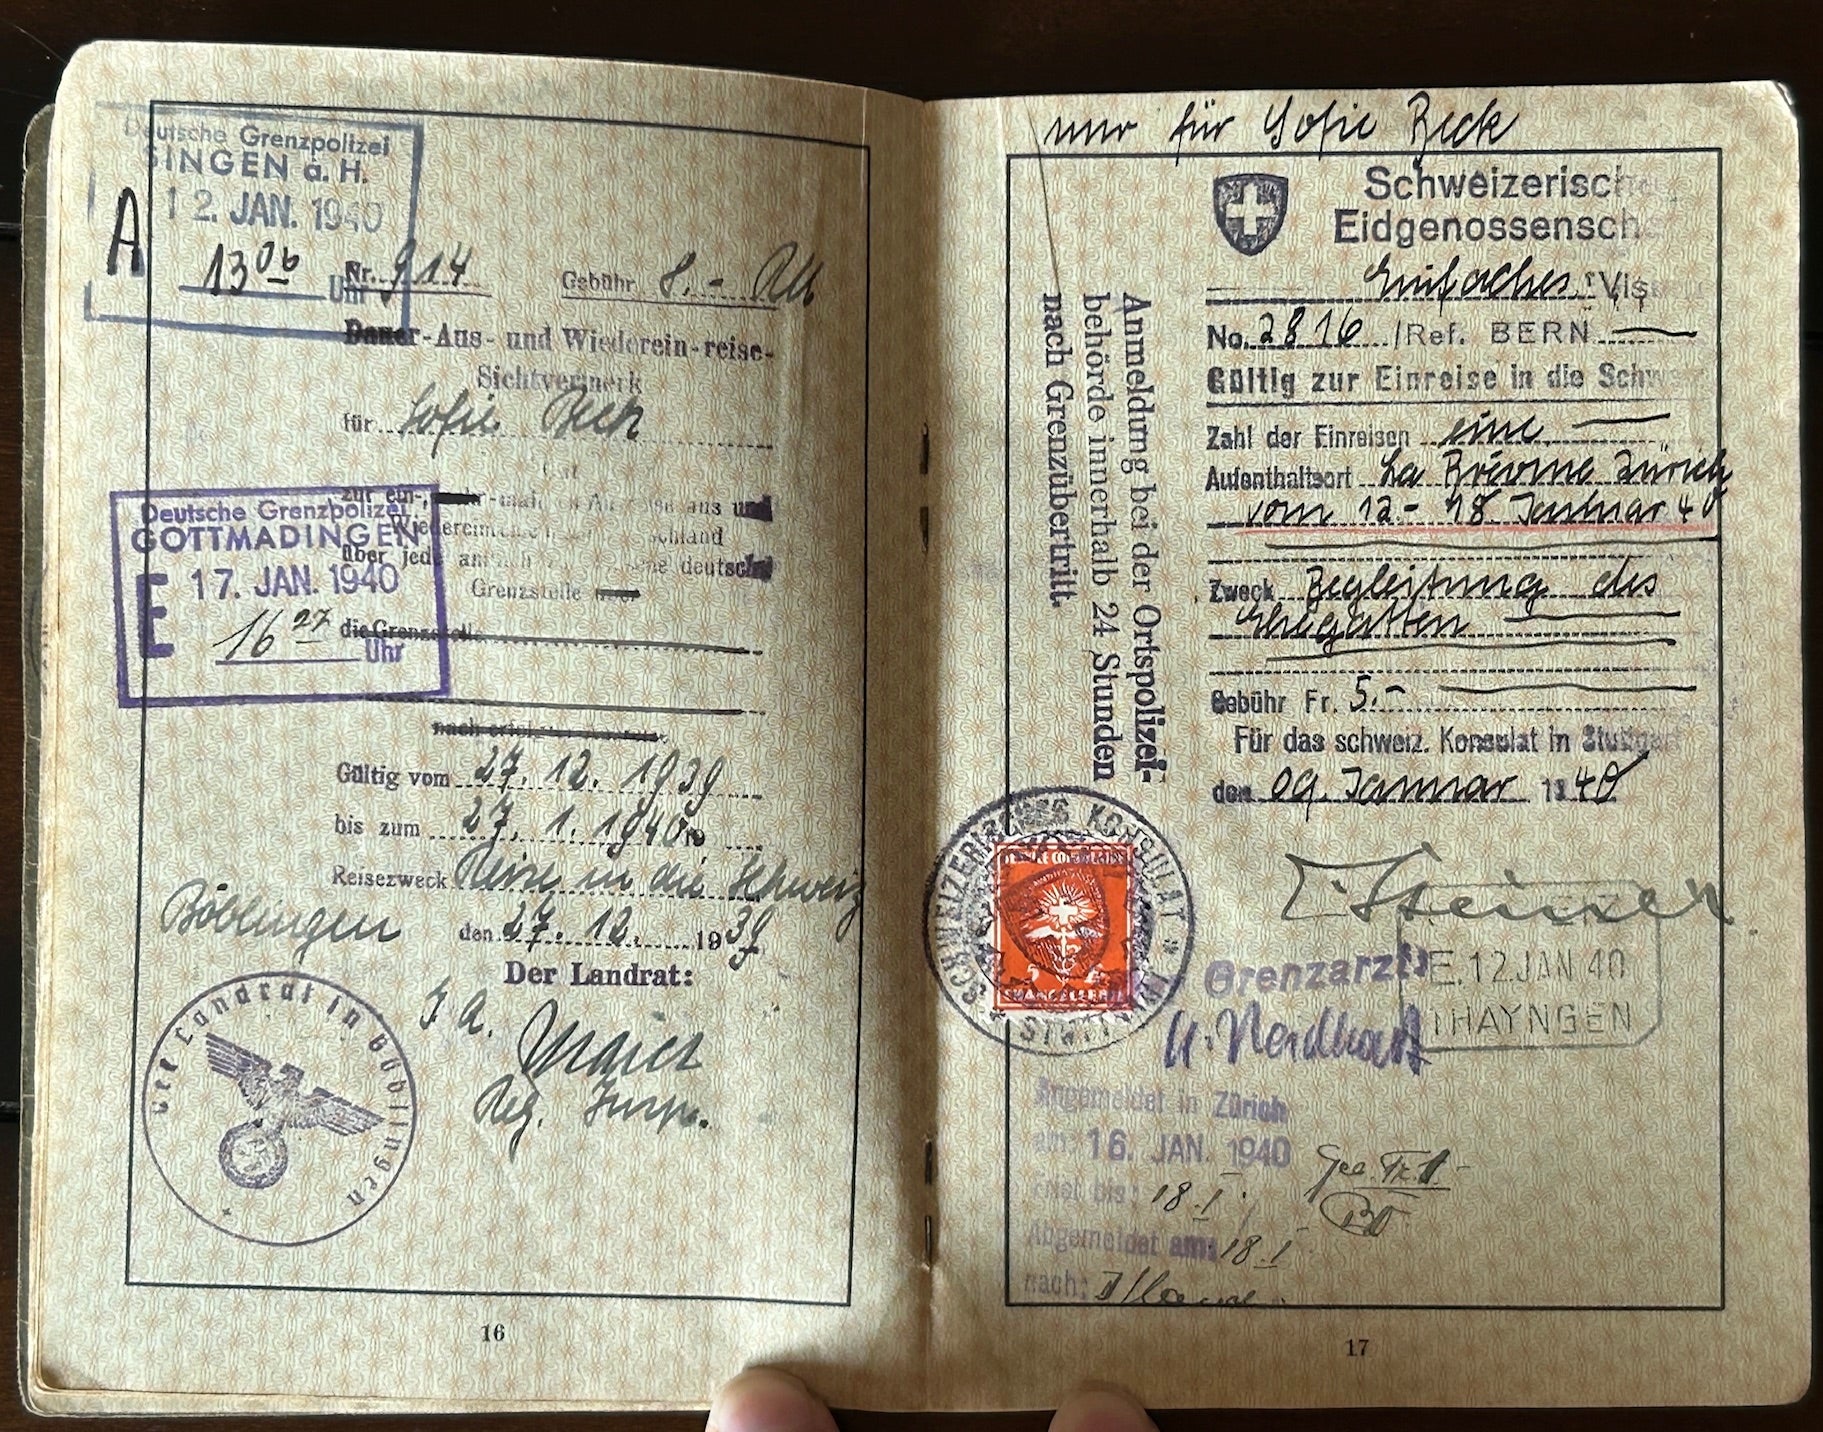 Deutsche Grenzpolizei
SINGEN a. H.
12. JAN. 1940
A
13 06 Uhr
Nr. 914 Gebühr 8.- RM
Dauer-Aus- und Wiederein-reise-
Sichtvermerk
für Sofie Beck
zur ein-, aus und
Deutsche Grenzpolizei
GOTTMADINGEN
über jede deutsche
E
17. JAN. 1940
Grenzstelle
16 27 Uhr
die Grenzstelle
Gültig vom 27. 12. 1939
bis zum 27. 1. 1940
Reisezweck Reise in die Schweiz
Böblingen den 27. 12. 1939
Der Landrat:
I. A.
Maier
Reg. Insp.
Der Landrat in Böblingen
16
nur für Sofie Beck
Schweizerische
Eidgenossenscha
Einfaches Vis
No. 2816 /Ref. BERN
Gültig zur Einreise in die Schw
Zahl der Einreisen eine
Aufenthaltsort La Brévine Zürich
vom 12 - 18. Januar 40
Zweck Begleitung des
Ehegatten
Gebühr Fr. 5.-
Für das schweiz. Konsulat in Stuttgart
den 09. Januar 1940
Anmeldung bei der Ortspolizei-
behörde innerhalb 24 Stunden
nach Grenzübertritt.
SCHWEIZERISCHES KONSULAT
Steiner
Grenzarzt:
E. 12 JAN 40
THAYNGEN
Angemeldet in Zürich
am: 16. JAN. 1940
Frist bis: 18. I.
Abgemeldet am: 18. I.
nach:
17